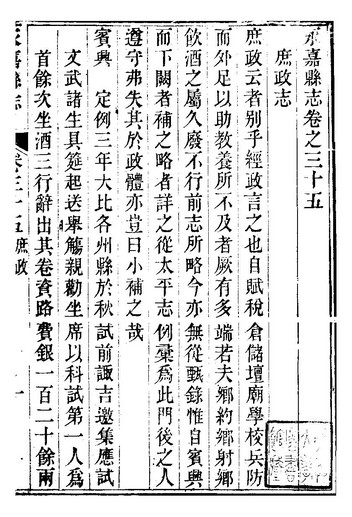 永嘉縣志卷之三十五
庶政志
庶政云者别乎經政言之也自賦稅倉儲壇廟學校兵防
而外足以助敎養所不及者厥有多端若夫鄉約鄉射鄉
飲酒之屬久廢不行前志所略今亦無從甄錄惟自賓興
而下闕者補之略者詳之從太平志例彙爲此門後之人
遵守弗失其於政體亦豈曰小補之哉
賓興　定例三年大比各州縣於秋試前諏吉邀集應試
文武諸生具筵起送舉觴親勸坐席以科試第一人爲
首餘次坐酒三行辭出其卷資路費銀一百二十餘兩
永嘉縣志
卷之三十五庶政
一